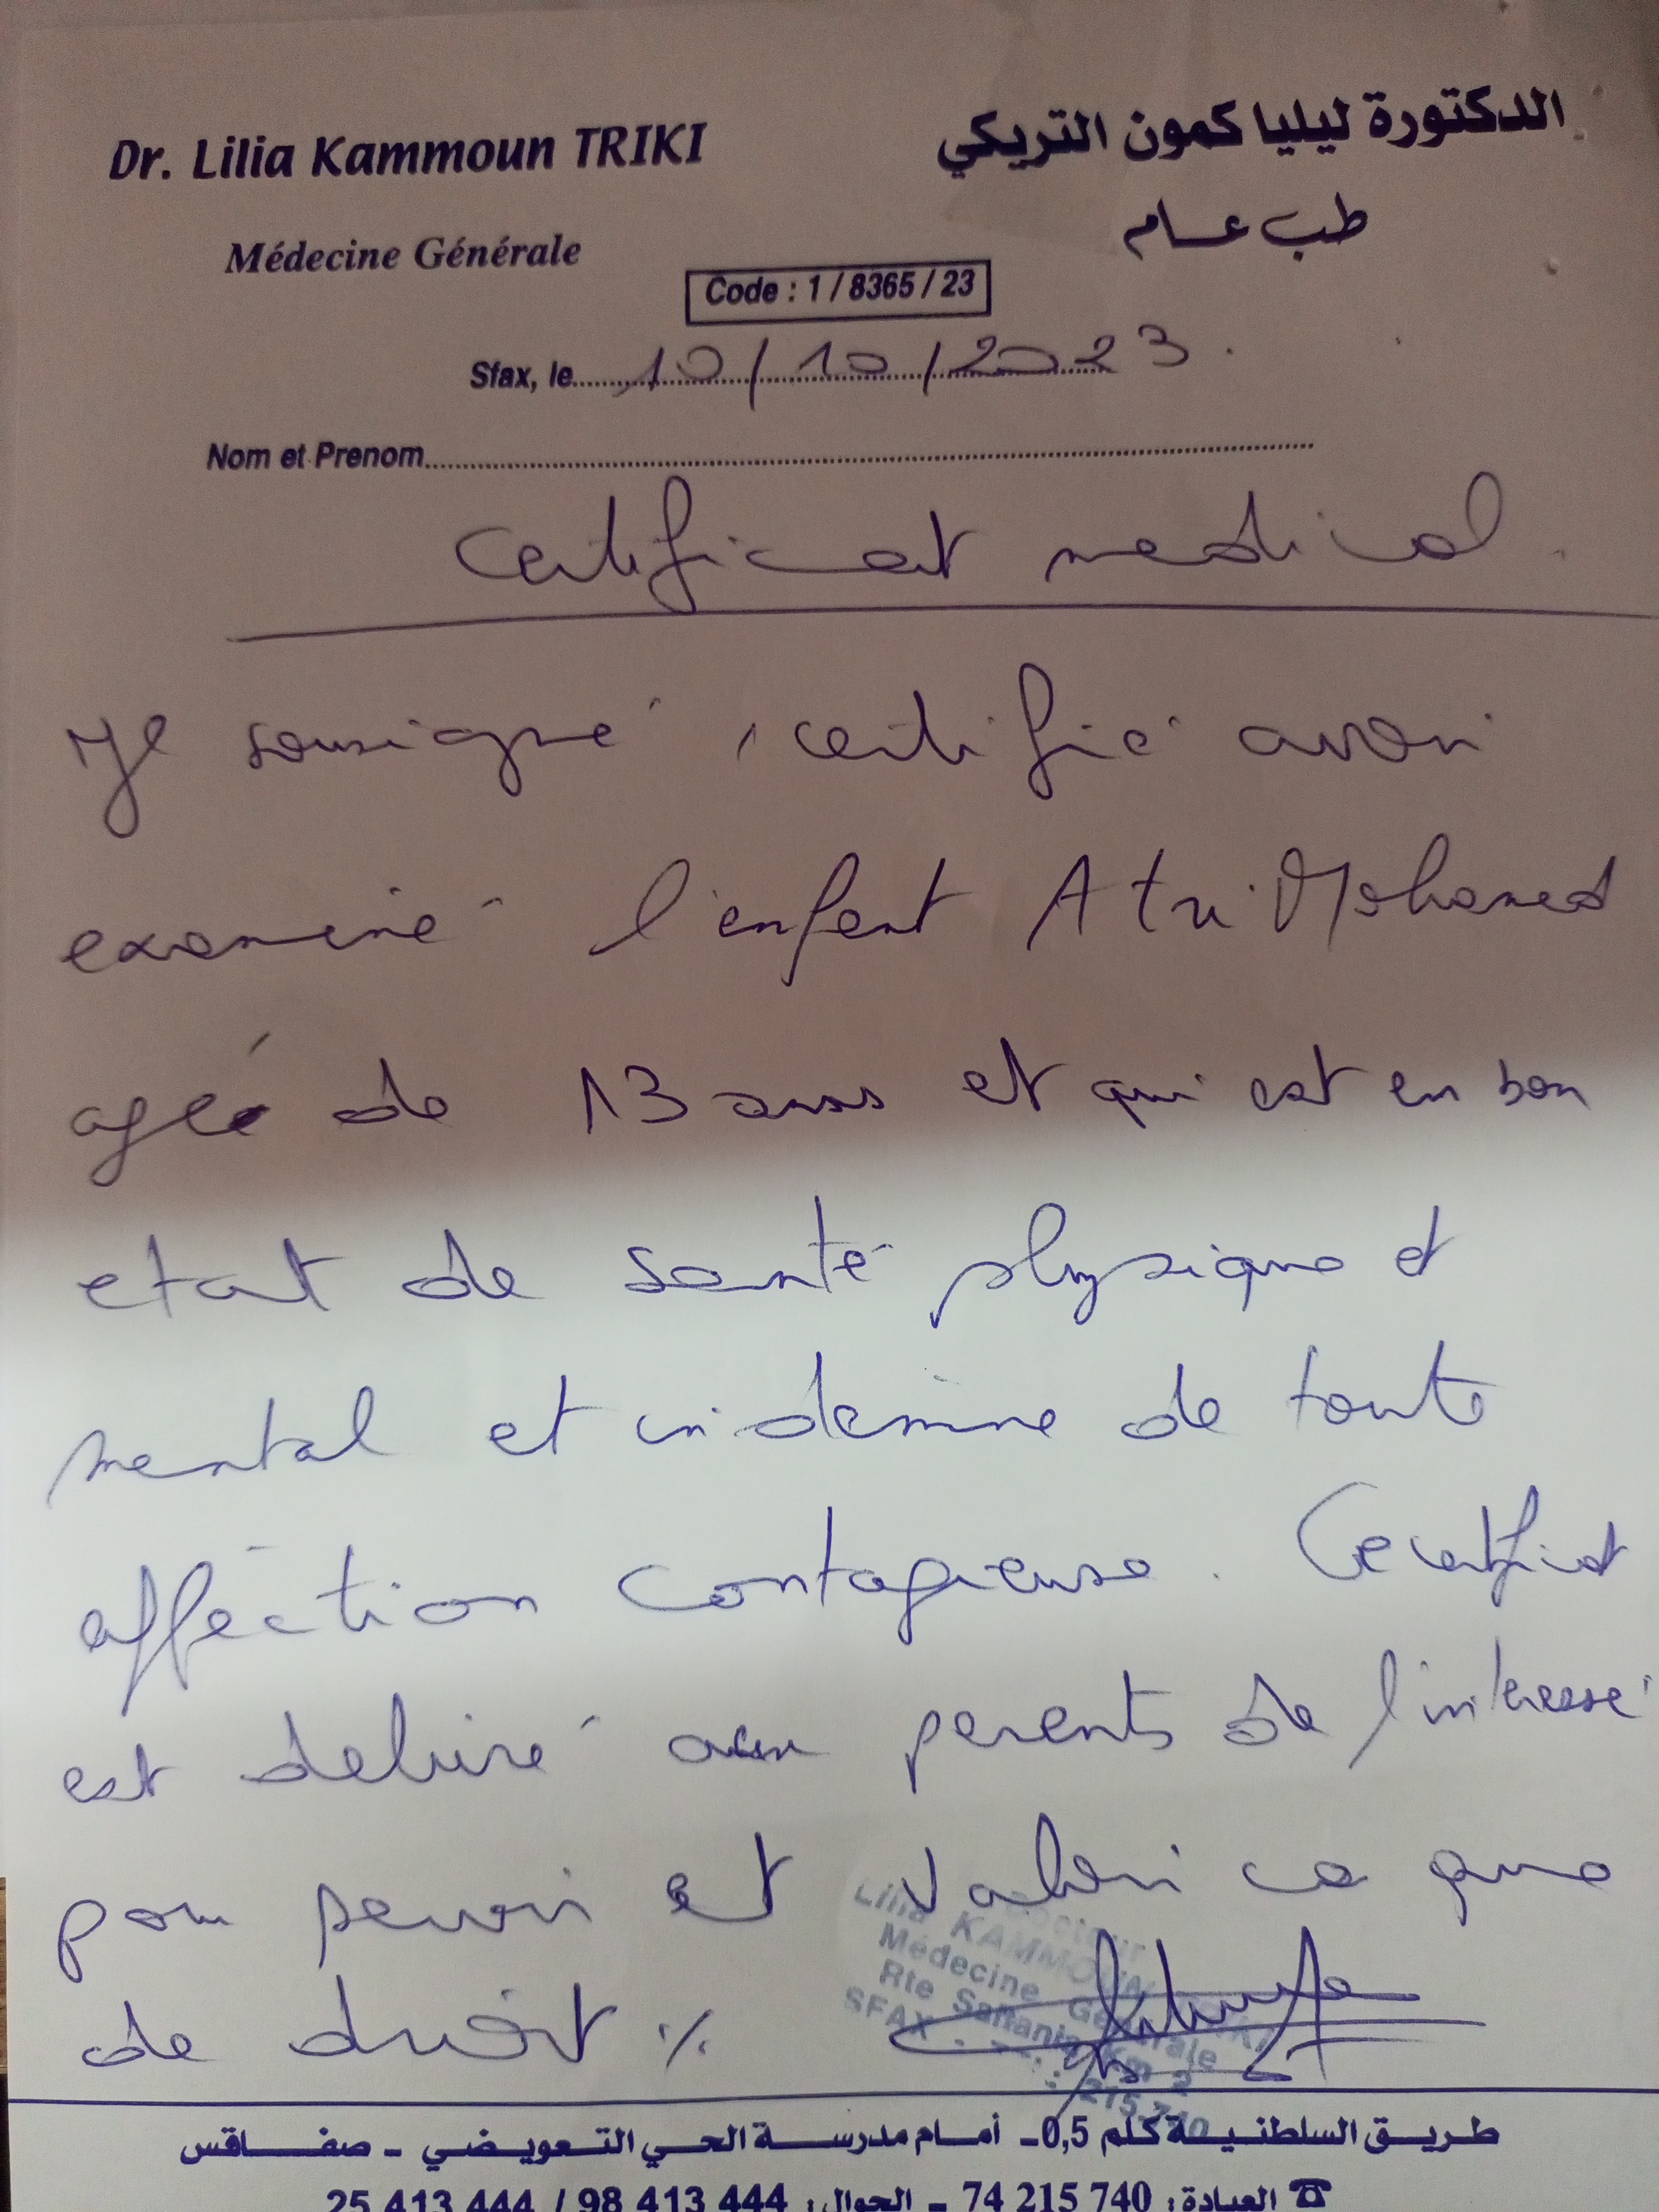 Dr. Lilia Kammoun TRIKI
الدكتورة ليليا كمون التريكي
Médecine Générale
طب عام
Code : 1 / 8365 / 23
Sfax, le 10/10/2023.
Nom et Prenom
Certificat medical.
Je sousigné, certifié avoir
examiné l'enfant Atri Mohamed
agée de 13 ans et qui est en bon
etat de santé physique et
mental et indemine de toute
affection contagieuse. Ce certificat
est delivré aux parents de l'interessé
pour servir et valoir ce que
de droit ./.
Docteur
Lilia KAMMOUN TRIKI
Médecine Générale
Rte Saltania Km 2
SFAX - 215.740
طريق السلطنية كلم 0,5 - أمام مدرسة الحي التعويضي - صفاقس
☎ العيادة : 740 215 74 - الجوال : 444 413 98 / 444 413 25